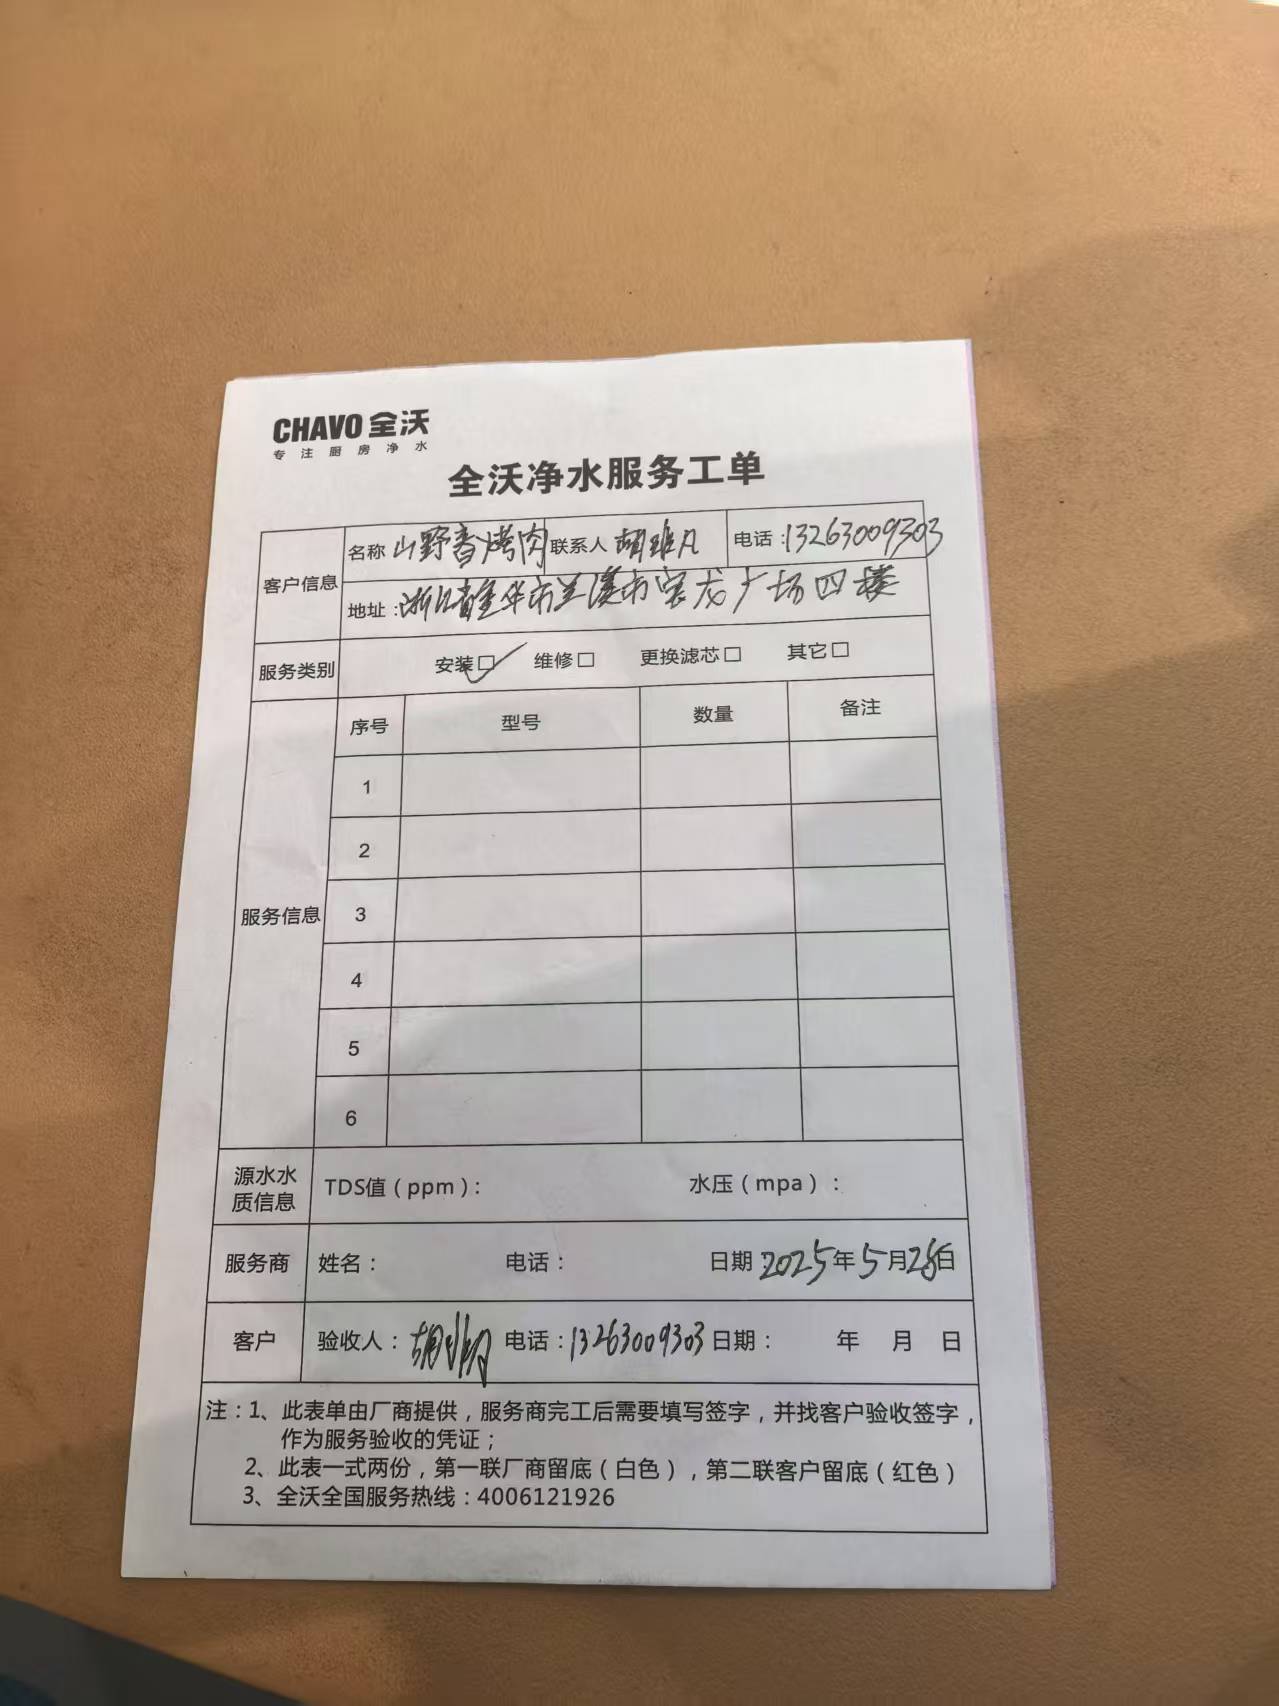 CHAVO 全沃
专注厨房净水
全沃净水服务工单
客户信息
名称 山野香烤肉 联系人 胡 凡 电话：13263009303
地址：浙江省金华市兰溪市宝龙广场四楼
服务类别 安装□✓ 维修□ 更换滤芯□ 其它□
服务信息
序号 型号 数量 备注
1
2
3
4
5
6
源水水质信息 TDS值（ppm）： 水压（mpa）：
服务商 姓名： 电话： 日期 2025年5月28日
客户 验收人：胡 电话：13263009303 日期： 年 月 日
注：1、此表单由厂商提供，服务商完工后需要填写签字，并找客户验收签字，
作为服务验收的凭证；
2、此表一式两份，第一联厂商留底（白色），第二联客户留底（红色）
3、全沃全国服务热线：4006121926